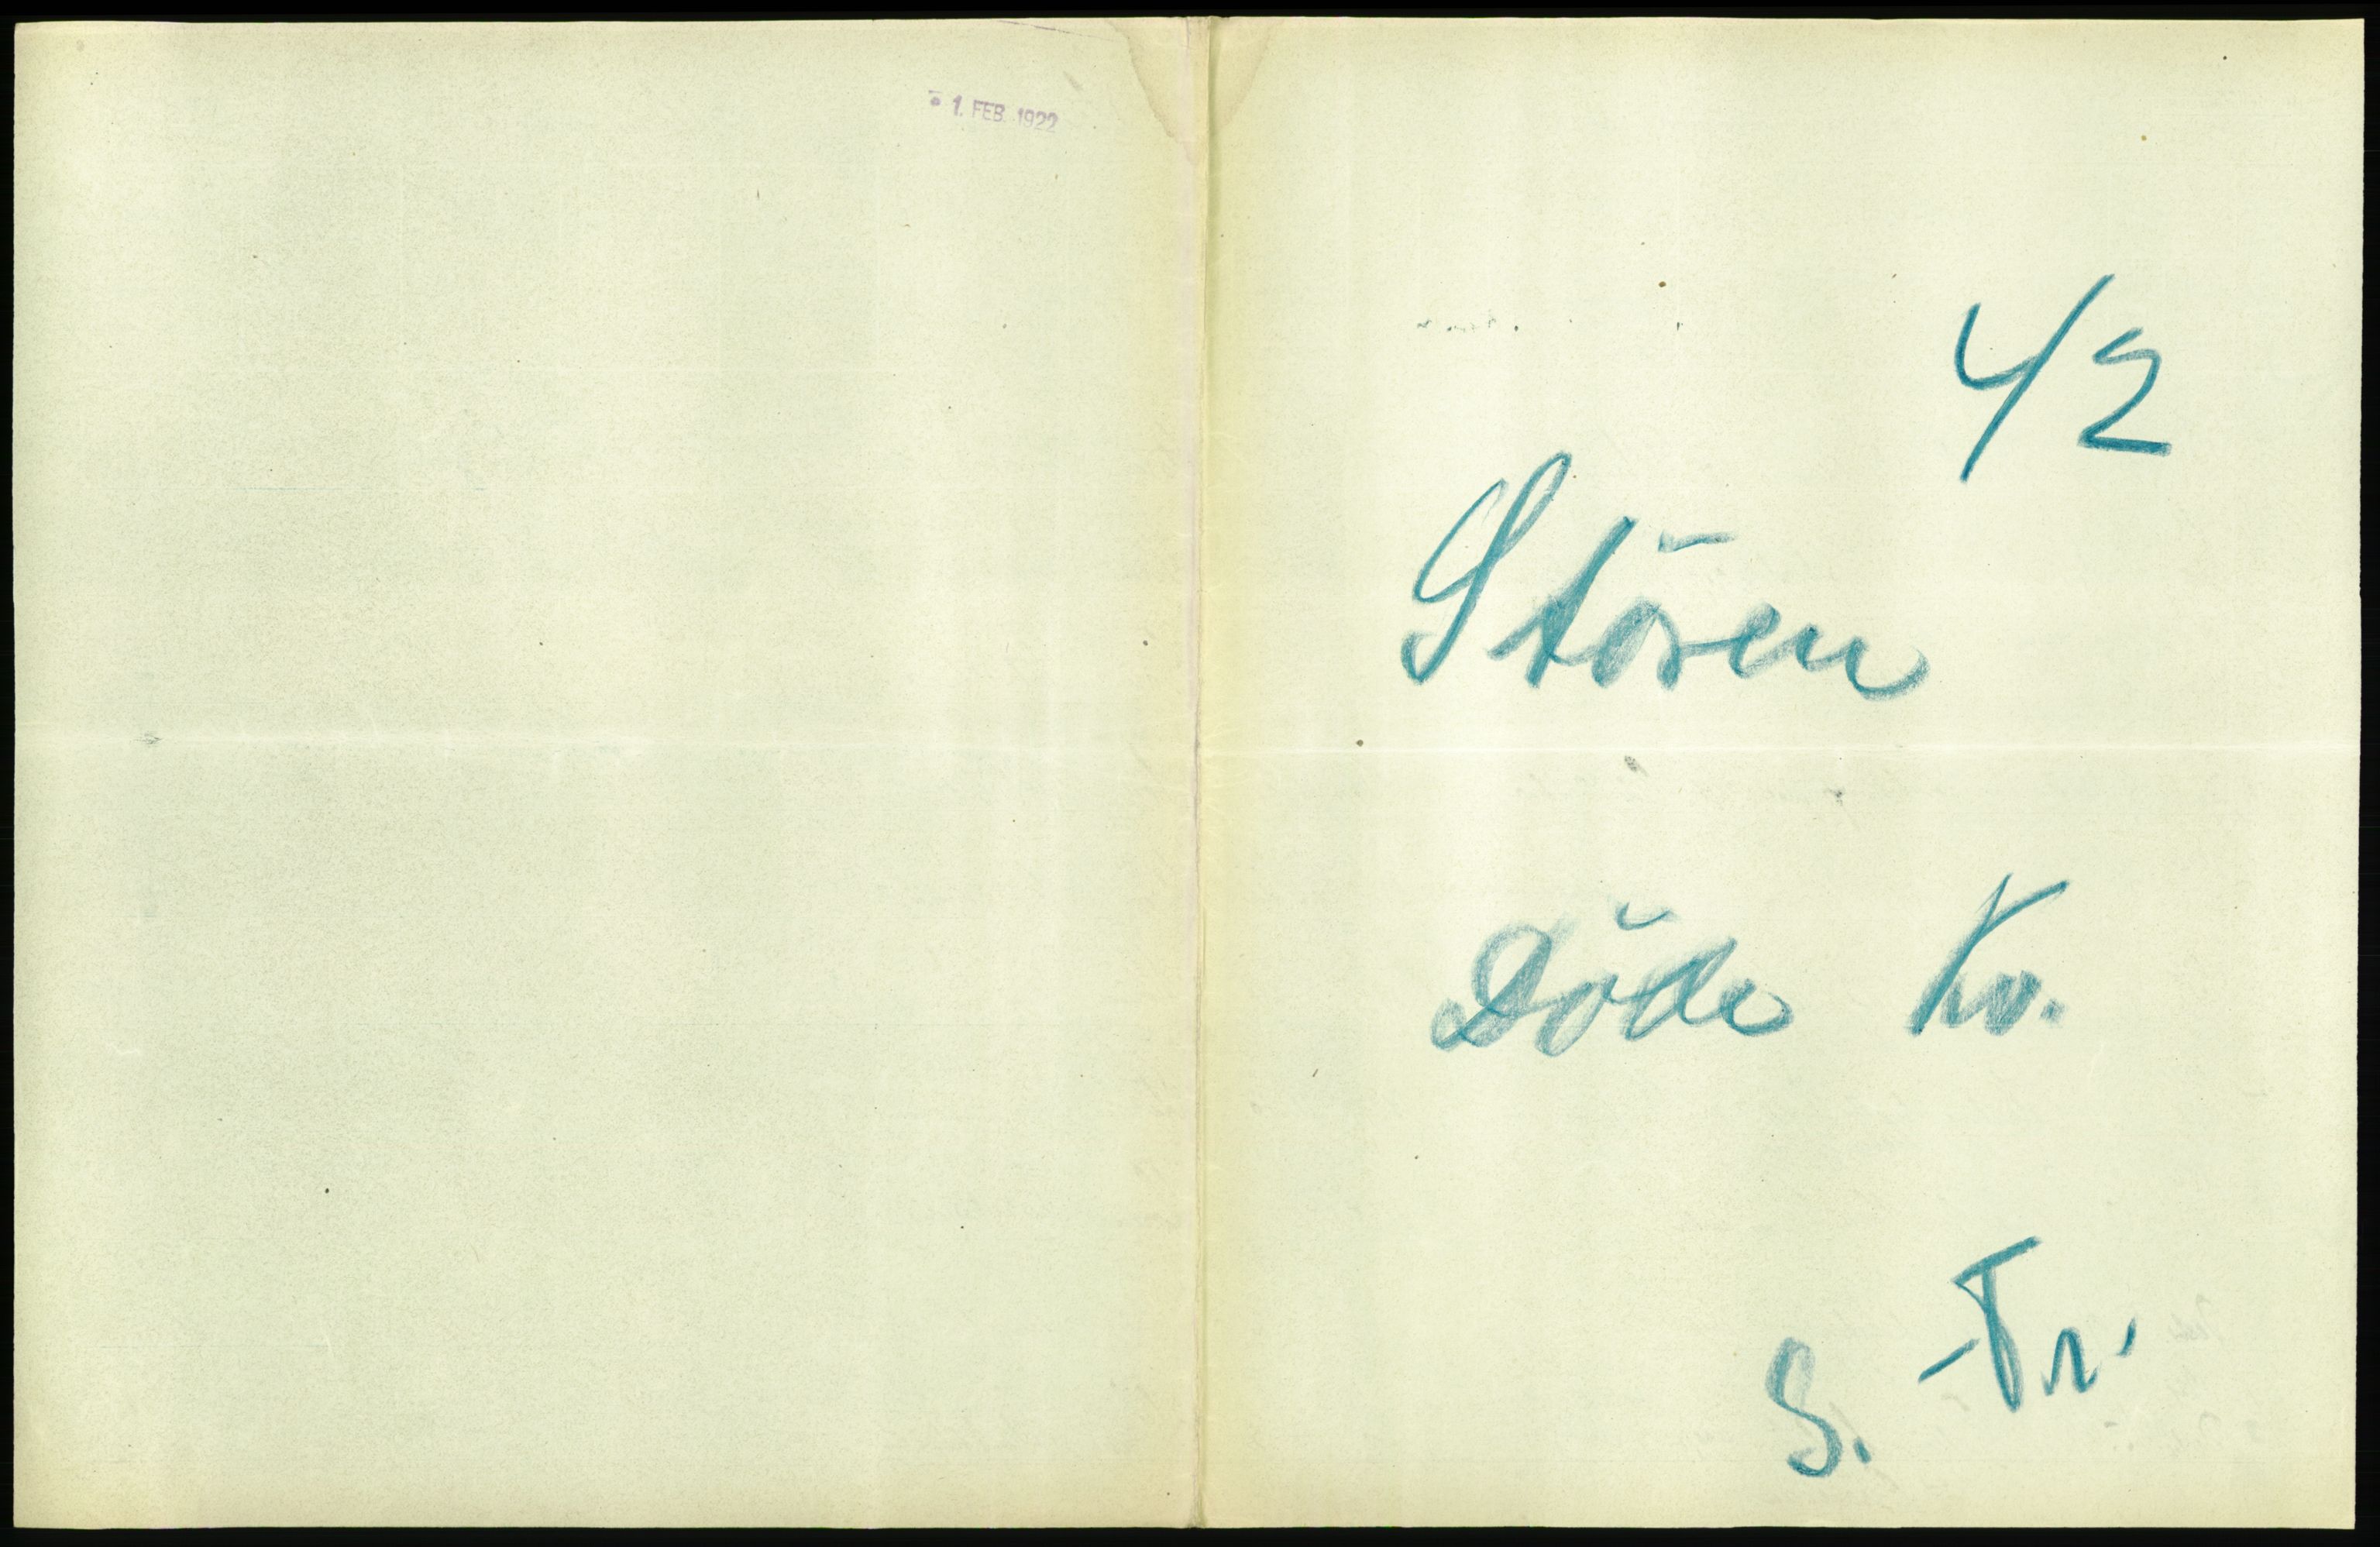 1. FEB. 1922
42
Stören
Döde Kv.
S.-Tr.